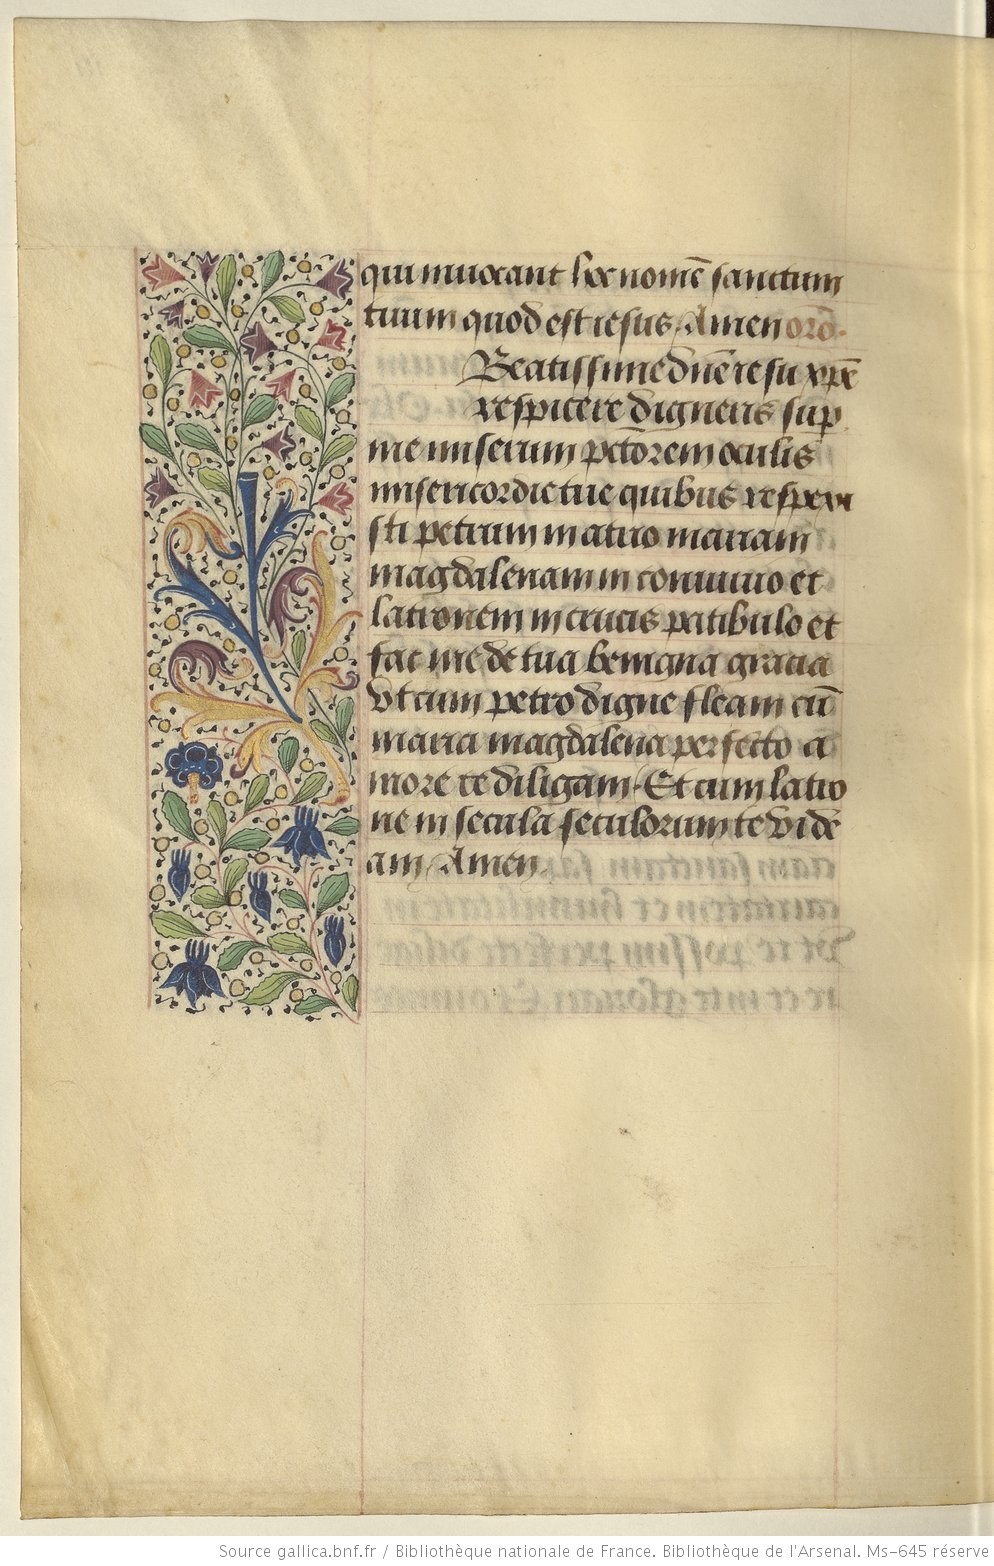 qui inuocant hoc nomē sanctum
tuum quod est iesus. Amen orō.
Beatissime dn̄e iesu xpē
respicere digneris suꝑ
me miserum pctōrem oculis
misericordie tue quibus respexi
sti petrum in atrio mariam
magdalenam in conuiuio et
latronem in crucis patibulo et
fac me de tua benigna gracia
vt cum petro digne fleam cū
maria magdalena perfecto a
more te diligam. Et cum latro
ne in secula seculorum te vide
am. Amen.
Source gallica.bnf.fr / Bibliothèque nationale de France. Bibliothèque de l'Arsenal. Ms-645 réserve